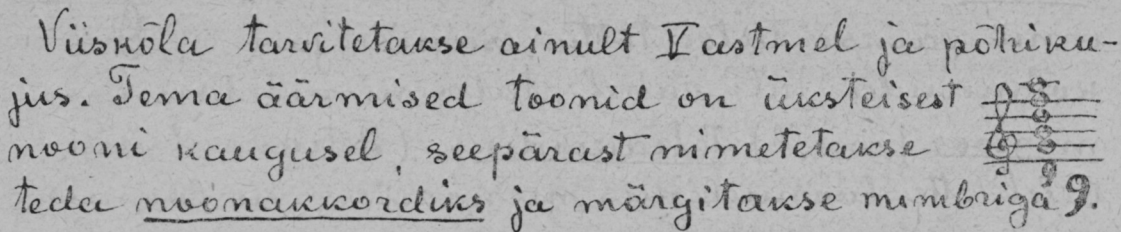 Viiskõla tarvitetakse ainult V astmel ja põhiku-
jus. Tema äärmised toonid on üksteisest
nooni kaugusel, seepärast nimetetakse
teda noonakkordiks ja märgitakse numbriga 9.
9